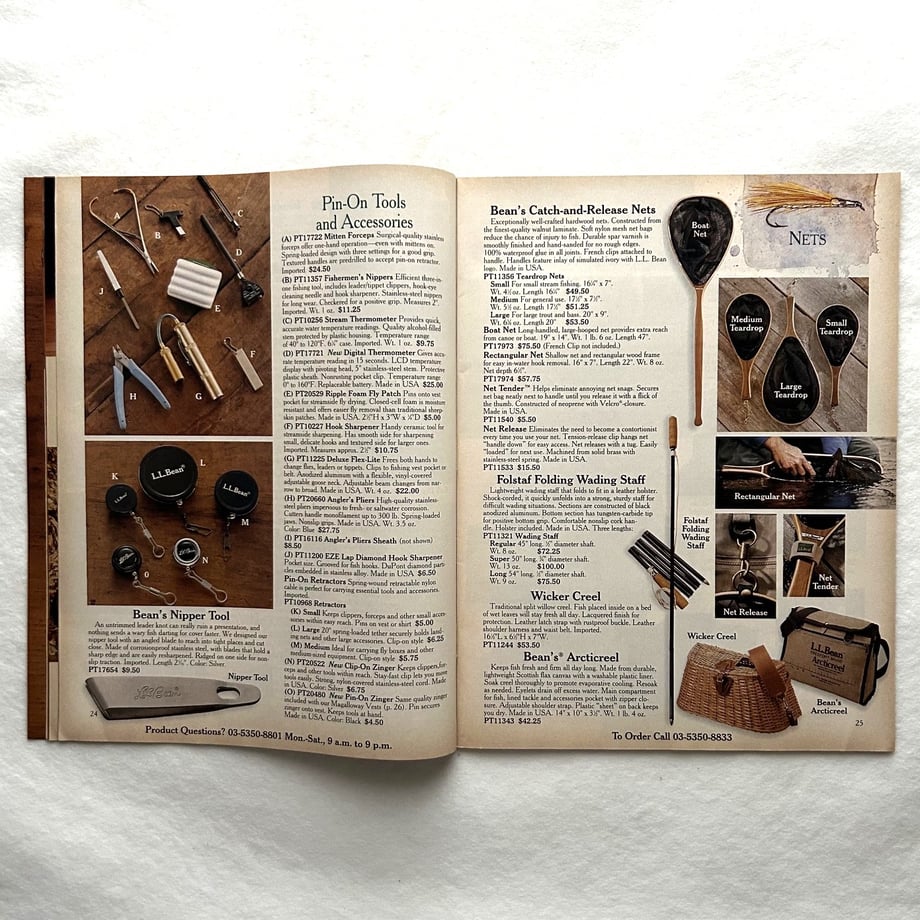 A
B
C
D
E
F
G
H
J
K
L
M
N
O
L.L.Bean
L.L.Bean
Pin-On Tools
and Accessories
(A) PT17722 Mitten Forceps Surgical-quality stainless
forceps offer one-hand operation—even with mittens on.
Spring-loaded design with three settings for a good grip.
Textured handles are predrilled to accept pin-on retractor.
Imported. $24.50
(B) PT11357 Fishermen's Nippers Efficient three-in-
one fishing tool, includes leader/tippet clippers, hook-eye
cleaning needle and hook sharpener. Stainless-steel nippers
for long wear. Checkered for a positive grip. Measures 2".
Imported. Wt. 1 oz. $11.25
(C) PT10256 Stream Thermometer Provides quick,
accurate water temperature readings. Quality alcohol-filled
stem protected by plastic housing. Temperature range
of 40° to 120°F. 6¼" case. Imported. Wt. 1 oz. $9.75
(D) PT17721 New Digital Thermometer Gives accu-
rate temperature reading in 15 seconds. LCD temperature
display with pivoting head, 5" stainless-steel stem. Protective
plastic sheath. Nonrusting pocket clip. Temperature range
0° to 160°F. Replaceable battery. Made in USA $25.00
(E) PT20529 Ripple Foam Fly Patch Pins onto vest
pocket for streamside fly drying. Closed-cell foam is moisture
resistant and offers easier fly removal than traditional sheep-
skin patches. Made in USA. 2½"H x 3"W x ¾"D $5.00
(F) PT10227 Hook Sharpener Handy ceramic tool for
streamside sharpening. Has smooth side for sharpening
small, delicate hooks and textured side for larger ones.
Imported. Measures approx. 2½" $10.75
(G) PT11225 Deluxe Flex-Lite Frees both hands to
change flies, leaders or tippets. Clips to fishing vest pocket or
belt. Anodized aluminum with a flexible, vinyl-covered
adjustable goose neck. Adjustable beam changes from nar-
row to broad. Made in USA. Wt. 4 oz. $22.00
(H) PT20660 Angler's Pliers High-quality stainless-
steel pliers impervious to fresh- or saltwater corrosion.
Cutters handle monofilament up to 300 lb. Spring-loaded
jaws. Nonslip grips. Made in USA. Wt. 3.5 oz.
Color: Blue $27.75
(I) PT16116 Angler's Pliers Sheath (not shown)
$8.50
(J) PT11200 EZE Lap Diamond Hook Sharpener
Pocket size. Grooved for fish hooks. DuPont diamond parti-
cles embedded in stainless alloy. Made in USA $6.50
Pin-On Retractors Spring-wound retractable nylon
cable is perfect for carrying essential tools and accessories.
Imported.
PT10968 Retractors
(K) Small Keeps clippers, forceps and other small acces-
sories within easy reach. Pins on vest or shirt. $5.00
(L) Large 20" spring-loaded tether securely holds land-
ing nets and other large accessories. Clip-on style $6.25
(M) Medium Ideal for carrying family of pliers and other
medium-sized equipment. Clip-on style $5.75
(N) PT20522 New Clip-On Zinger Keeps clippers, for-
ceps and other tools within reach. Stay-fast clip lets you move
tools easily. Strong, nylon-covered stainless-steel cord. Made
in USA. Color: Silver $6.75
(O) PT20480 New Pin-On Zinger Same quality zinger
included with our Magalloway Vests (p. 26). Pin secures
zinger onto vest. Keeps tools at hand.
Made in USA. Color: Black $4.50
Bean's Nipper Tool
An untrimmed leader knot can really ruin a presentation, and
nothing sends a wary fish darting for cover faster. We designed our
nipper tool with an angled blade to reach into tight places and cut
close. Made of corrosionproof stainless steel, with blades that hold a
sharp edge and are easily resharpened. Ridged on one side for non-
slip traction. Imported. Length 2¼". Color: Silver.
PT17654 $9.50
Nipper Tool
L.L.Bean
24
Product Questions? 03-5350-8801 Mon.-Sat., 9 a.m. to 9 p.m.
Bean's Catch-and-Release Nets
Exceptionally well-crafted hardwood nets. Constructed from
the finest-quality walnut laminate. Soft nylon mesh net bags
reduce the chance of injury to fish. Durable spar varnish is
smoothly finished and hand-sanded for no rough edges.
100% waterproof glue in all joints. French clips attached to
handle. Handles feature inlay of simulated ivory with L.L. Bean
logo. Made in USA.
PT11356 Teardrop Nets
Small For small stream fishing. 16¼" x 7".
Wt. 4½ oz. Length 16¼" $49.50
Medium For general use. 17½" x 7½".
Wt. 5½ oz. Length 17½" $51.25
Large For large trout and bass. 20" x 9".
Wt. 6½ oz. Length 20" $53.50
Boat Net Long-handled, large-hooped net provides extra reach
from canoe or boat. 19" x 14". Wt. 1 lb. 6 oz. Length 47".
PT17973 $75.50 (French Clip not included.)
Rectangular Net Shallow net and rectangular wood frame
for easy in-water hook removal. 16" x 7". Length 22". Wt. 8 oz.
Net depth 6½".
PT17974 $57.75
Net Tender™ Helps eliminate annoying net snags. Secures
net bag neatly next to handle until you release it with a flick of
the thumb. Constructed of neoprene with Velcro®-closure.
Made in USA.
PT11540 $5.50
Net Release Eliminates the need to become a contortionist
every time you use your net. Tension-release clip hangs net
"handle down" for easy access. Net releases with a tug. Easily
"loaded" for next use. Machined from solid brass with
stainless-steel spring. Made in USA.
PT11533 $15.50
Folstaf Folding Wading Staff
Lightweight wading staff that folds to fit in a leather holster.
Shock-corded, it quickly unfolds into a strong, sturdy staff for
difficult wading situations. Sections are constructed of black
anodized aluminum. Bottom section has tungsten-carbide tip
for positive bottom grip. Comfortable nonslip cork han-
dle. Holster included. Made in USA. Three lengths:
PT11321 Wading Staff
Regular 45" long, ½" diameter shaft.
Wt. 8 oz. $72.25
Super 50" long, ¾" diameter shaft.
Wt. 13 oz. $100.00
Long 54" long, ½" diameter shaft.
Wt. 9 oz. $75.50
Wicker Creel
Traditional split willow creel. Fish placed inside on a bed
of wet leaves will stay fresh all day. Lacquered finish for
protection. Leather strap with rustproof buckle. Leather
shoulder harness and waist belt. Imported.
16½"L x 6½"H x 7"W.
PT11244 $53.50
Bean's® Arcticreel
Keeps fish fresh and firm all day long. Made from durable,
lightweight Scottish flax canvas with a washable plastic liner.
Soak creel thoroughly to promote evaporative cooling. Resoak
as needed. Eyelets drain off excess water. Main compartment
for fish, lined tackle and accessories pocket with zipper clo-
sure. Adjustable shoulder strap. Plastic "sheet" on back keeps
you dry. Made in USA. 14" x 10" x 3½". Wt. 1 lb. 4 oz.
PT11343 $42.25
To Order Call 03-5350-8833
Boat
Net
NETS
Medium
Teardrop
Small
Teardrop
Large
Teardrop
Rectangular Net
Folstaf
Folding
Wading
Staff
Net Release
Net
Tender
Wicker Creel
L.L.Bean
Arcticreel
Bean's
Arcticreel
25